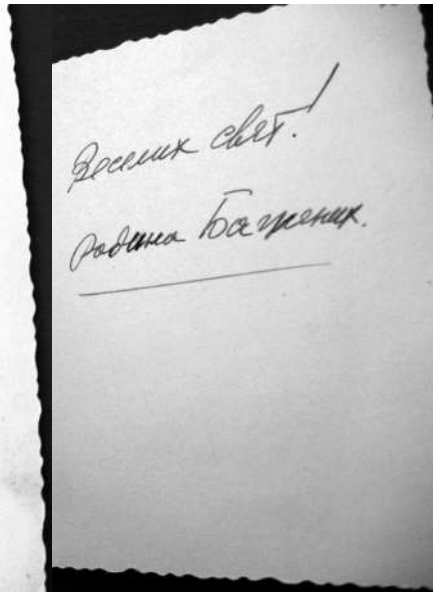 Веселих свят!
родина Багреник.